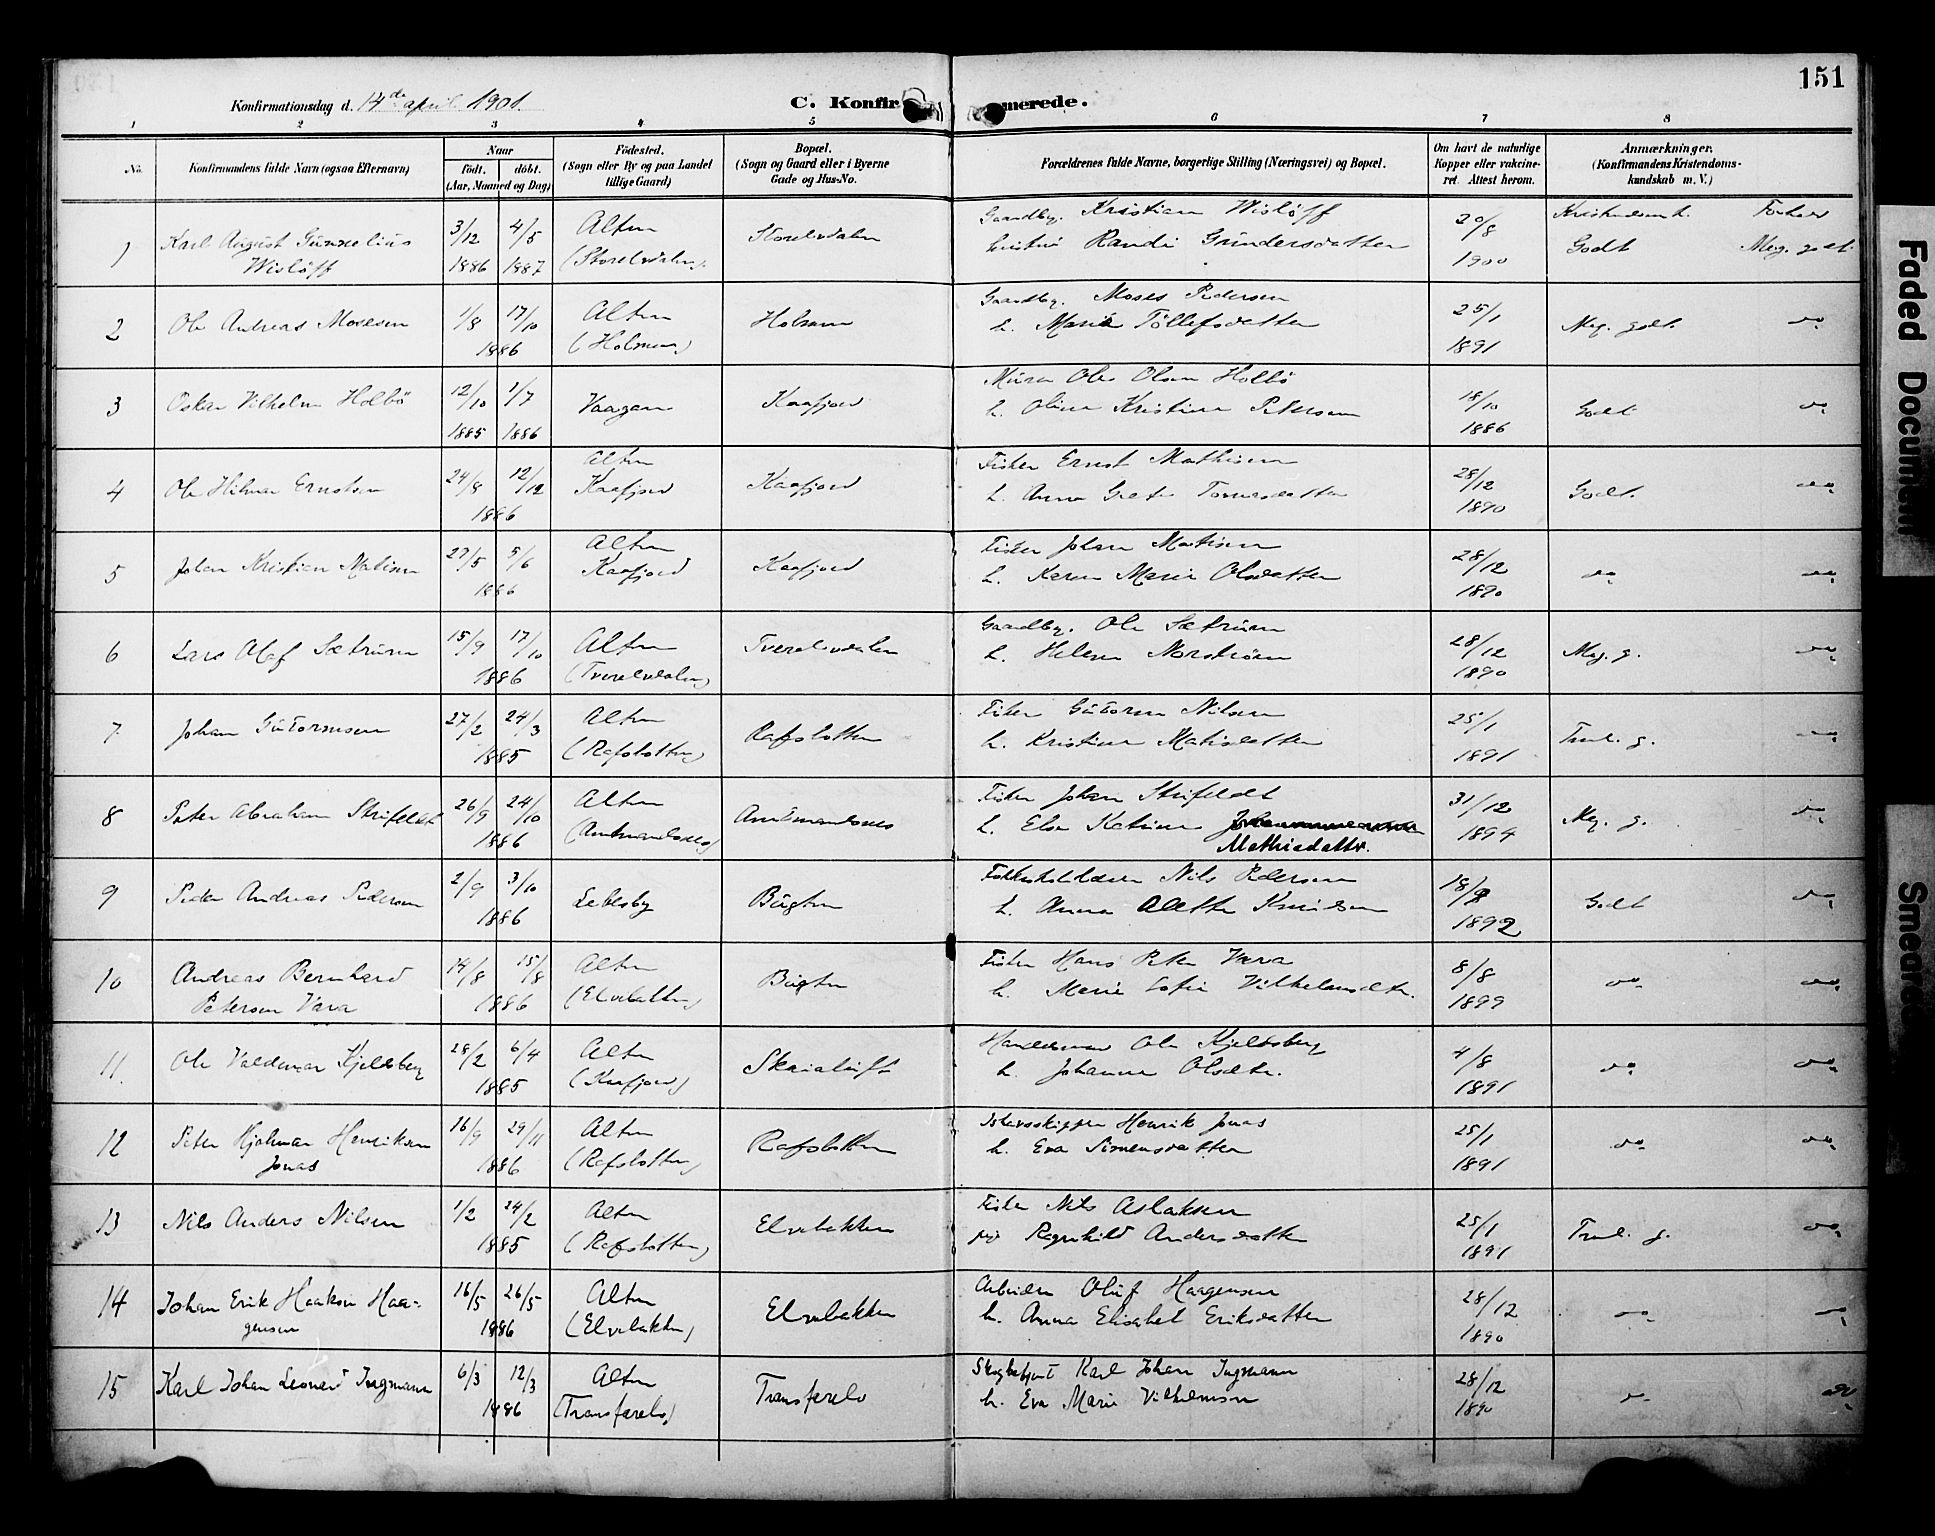 151
Konfirmationsdag d. 14de april 1901.
C. Konfirmerede.
1 2 3 4 5 6 7 8
No. Konfirmandens fulde Navn (ogsaa Efternavn) Naar født. døbt. (Aar, Maaned og Dag) Fødested. (Sogn eller By og paa Landet tillige Gaard) Bopæl. (Sogn og Gaard eller i Byerne Gade og Hus-No. Forældrenes fulde Navne, borgerlige Stilling (Næringsvei) og Bopæl. Om havt de naturlige Kopper eller vakcineret. Attest herom. Anmærkninger. (Konfirmandens Kristendomskundskab m. V.)
1 Karl August 3/12 4/5 Alten Storelvdalen Gaardbr. Kristian Wisløff 20/8 Kristendomsk. Forhold
Wisløff 1886 1887 (Storelvdalen) hustru Randi Gundersdatter 1900 Godt Meg. godt.
2 Ole Andreas Mosesen 1/8 17/10 Alten Holmen Gaardbr. Moses Pedersen 25/1 Meg. godt. do
1886 (Holmen) h. Marie Tollefsdatter 1891
3 Oskar Vilhelm Holbø 12/10 1/7 Vaagan Kaafjord Murer Ole Olsen Holbø 18/10 Godt do
1885 1886 h. Olina Kristine Petersen 1886
4 Ole Hilmar Ernstsen 24/8 12/12 Alten Kaafjord Fisker Ernst Mathisen 28/12 Godt. do
1886 Kaafjord h. Anna Grete Tomasdatter 1890
5 Johan Kristian Matisen 27/5 5/6 Alten Kaafjord Fisker Johan Matisen 28/12 do do
1886 Kaafjord h. Karen Marie Olsdatter 1890
6 Lars Olaf Sætrum 15/9 17/10 Alten Tverelvdalen Gaardbr. Ole Sætrum 28/12 Meg. g. do
1886 (Tverelvdalen) h. Helene Norstrøm 1890
7 Johan Guttormsen 27/2 24/3 Alten Rafsbotten Fisker Guttorm Nilsen 25/1 Teml. g. do
1885 (Rafsbotten) h. Kristine Matisdatter 1891
8 Peter Abraham Strifeldt 26/9 24/10 Alten Amtmandsnes Fisker Johan Strifeldt 31/12 Meg. g. do
1886 (Amtmandsnes) h. Elsa Katrine Mathisdatter. 1894
9 Peder Andreas Pedersen 2/9 3/10 Lebesby Bugten Nils Pedersen 18/8 Godt do
1886 h. Anna Alette Knudsen 1892
10 Andreas Bernhard 14/8 15/8 Alten Bugten Fisker Hans Peter Vara 8/8 do do
Petersen Vara 1886 (Elvebakken) h. Marie Sofie Vilhelmsdtr. 1899
11. Ole Valdemar Kjeldsberg 28/2 6/4 Alten Skaialuft Handelsmand Ole Kjeldsberg 4/8 do do
1885 (Kaafjord) h. Johanne Olsdtr. 1891
12 Peter Hjalmar Henriksen 16/9 29/11 Alten Rafsbotten Ishavsskipper Henrik Jonas 25/1 do do
Jonas 1886 (Rafsbotten) h. Eva Simensdatter 1891
13 Nils Anders Nilsen 1/2 24/2 Alten Elvebakken Fisker Nils Aslaksen 25/1 Teml. g. do
1885 (Rafsbotten) pige Ragnhild Andersdatter 1891
14 Johan Erik Haakon Haa- 16/5 26/5 Alten Elvebakken Arbeider Oluf Haagensen 28/12 do do
gensen 1886 (Elvebakken) h. Anna Elisabet Eriksdatter 1890
15 Karl Johan Leonard Ingmann 6/3 12/3 Alten Transfarelv Skogbetjent Karl Johan Ingmann 28/12 do do
1886 (Transfarelv) h. Eva Marie Vilhelmsen 1890
Faded Document
Smeared